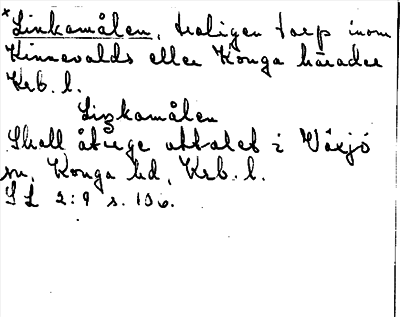 *Linkamålen, troligen torp inom
Kinnevalds eller Konga härader
Krb. l.
Lizkamålen
Skall återge uttalet i Växjö
sn, Konga hd, Krb. l.
SL 2:9 s. 106.